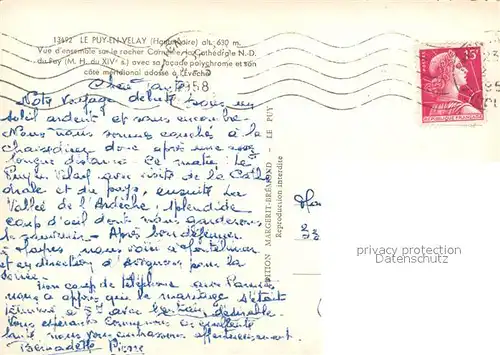 13492 LE PUY-EN-VELAY (Haute-Loire) alt. 630 m.
Vue d'ensemble sur le rocher Corneille, la Cathédrale N.-D.
du Puy (M. H. du XIVe s.) avec sa façade polychrome et son
côté méridional adossé à l'Évêché
1958
15F
POSTES
FRANÇAISE
Chère Tante
Notre voyage débute sous un
soleil ardent et sans encombre
Nous nous sommes couchés à la
Chaise-Dieu donc après une assez
longue distance. Ce matin: Le
Puy en Velay avec visite de la Cathé
drale et du pays, ensuite La
Vallée de l'Ardèche, splendide
coup d'œil dont nous garderons
le souvenir. Après bon déjeuner
nous voici à Montélimar
et en direction d'Avignon pour la
soirée.
Mon coup de téléphone aux Parents
nous a appris que le mariage s'était
terminé à 5h avec
Vous espérant tous en excellente
santé, nous vous embrassons affectueusement.
Bernadette Pierre
ÉDITION MARGERIT-BRÉMOND - LE PUY
Reproduction interdite
33
privates Angebot
oldthing.de